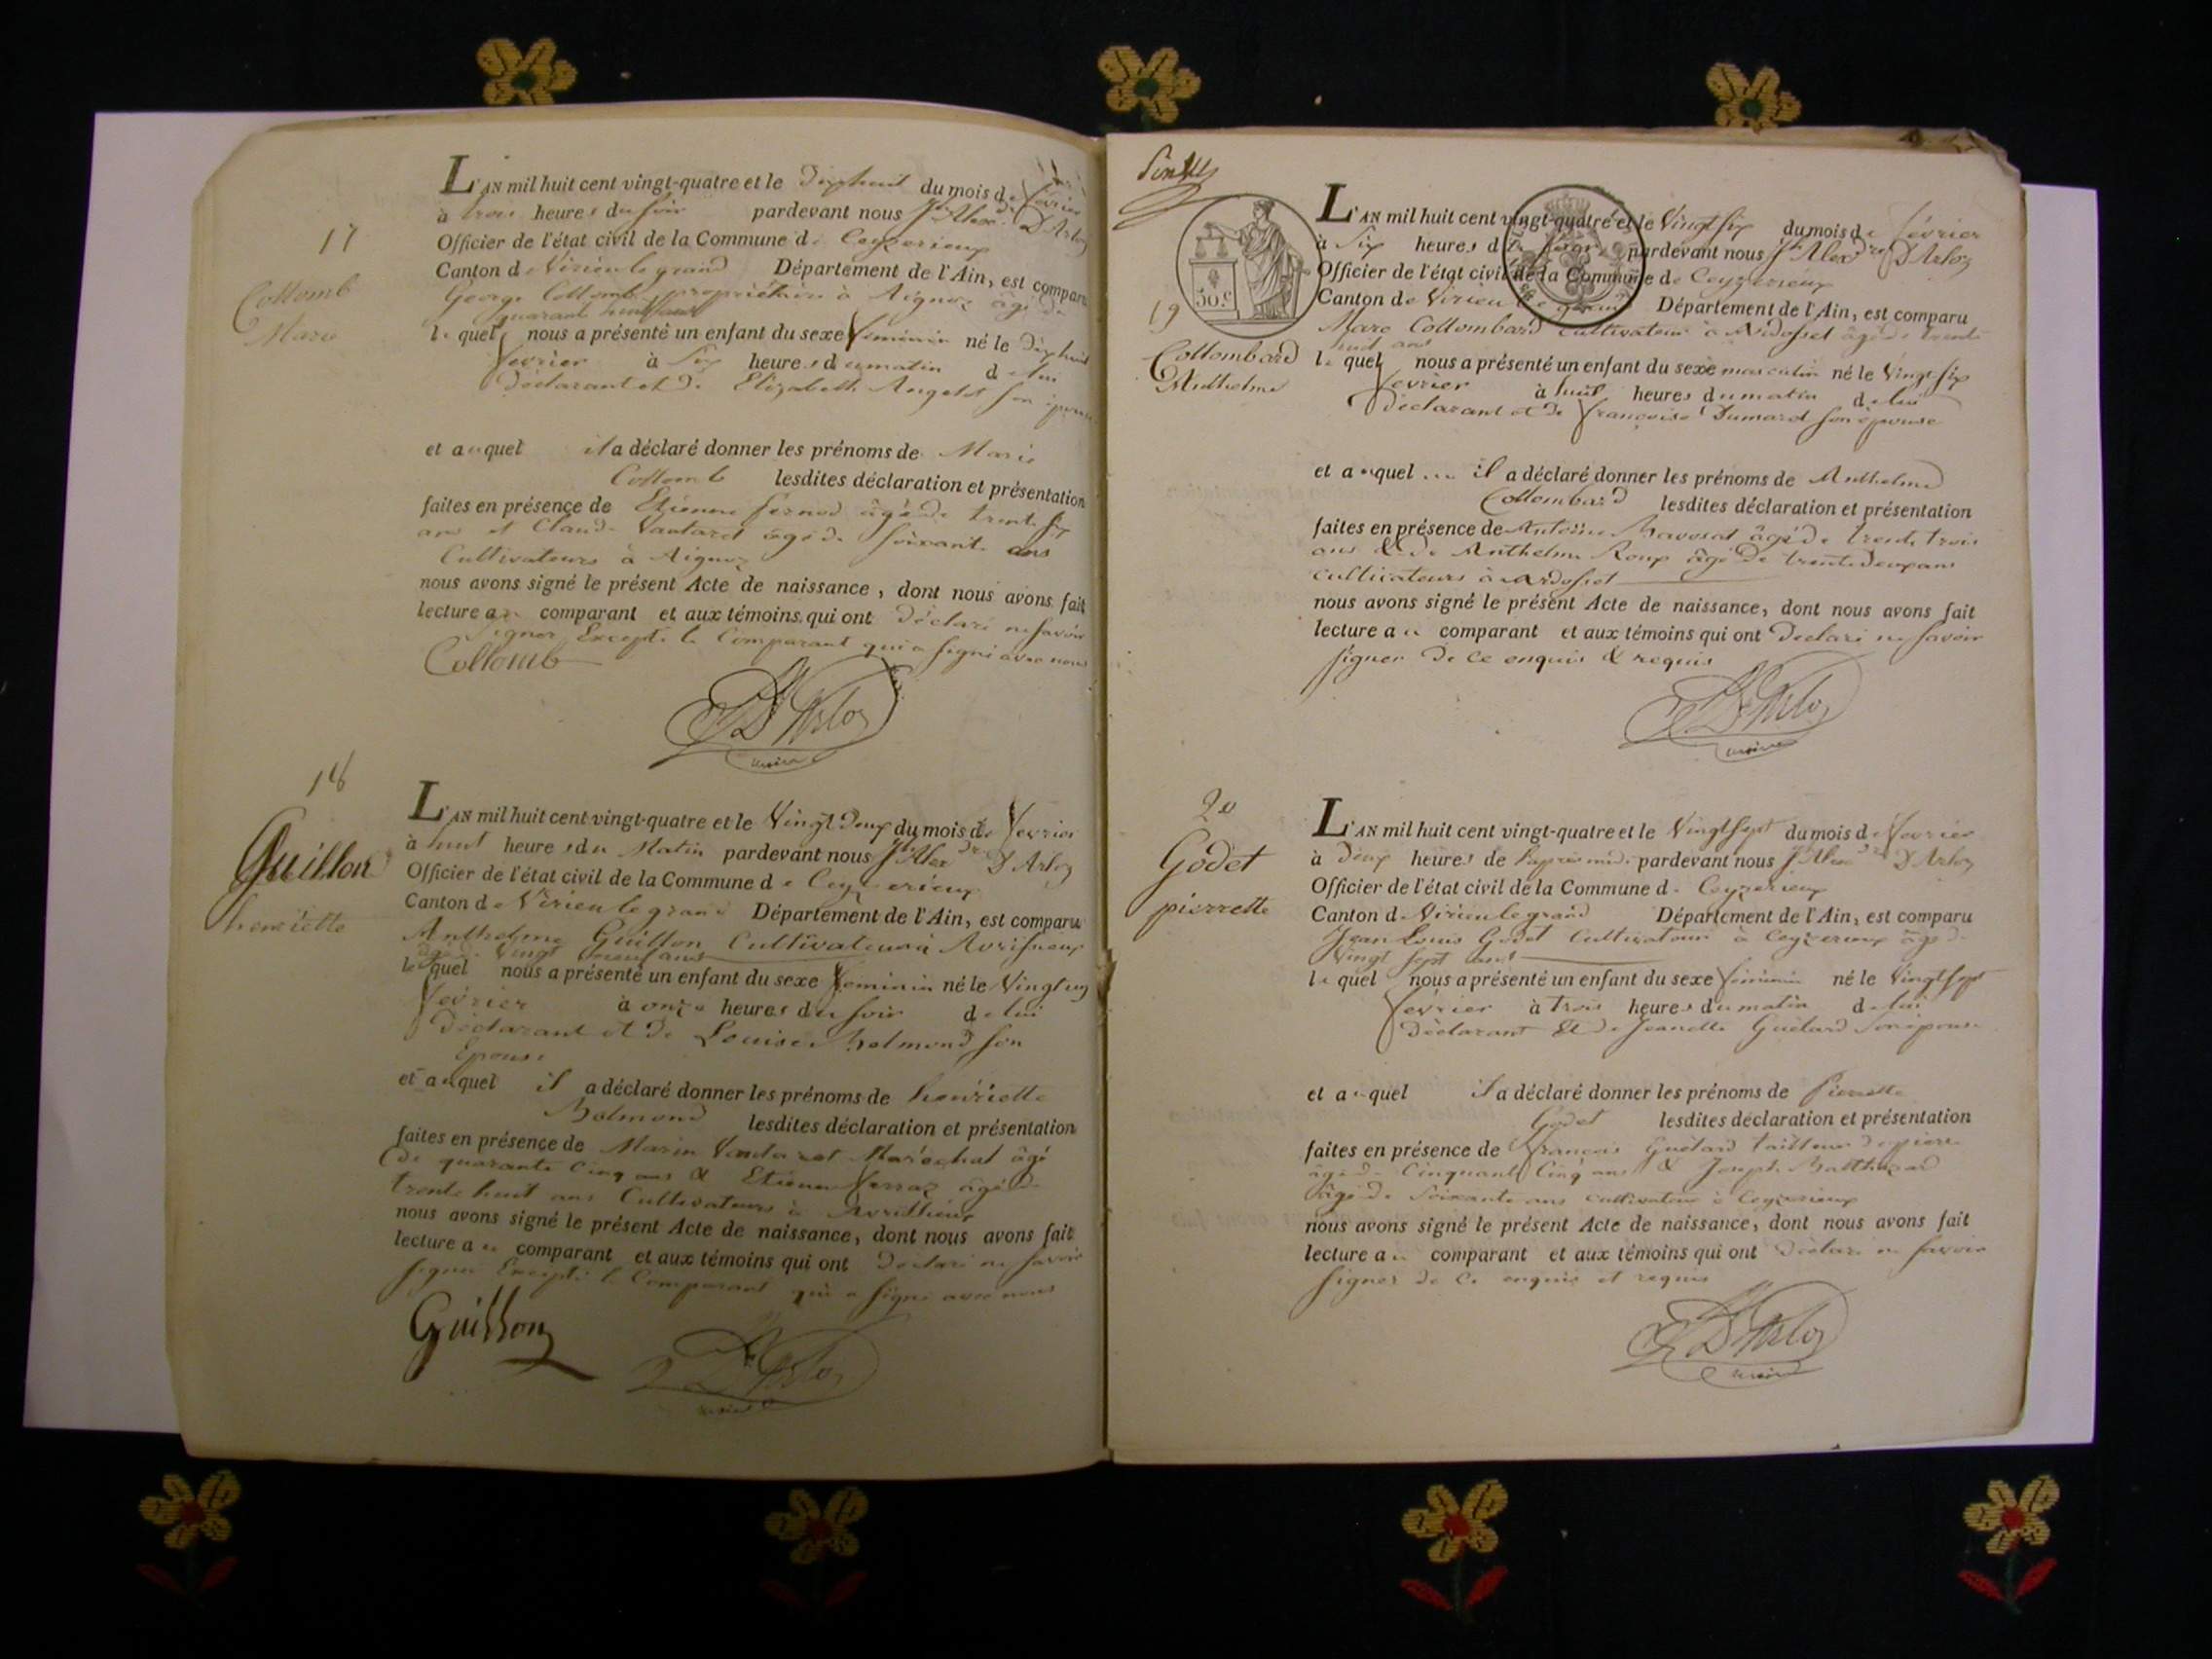 17
Collomb
Marie
L'AN mil huit cent vingt-quatre et le dixhuit du mois de février
à trois heures du soir pardevant nous Jh Alexdre D'Arloz
Officier de l'état civil de la Commune de Ceyzerieux
Canton de Virieu le grand Département de l'Ain, est comparu
George Collomb propriétaire à Aignoz âgé de
quarante huit ans
lequel nous a présenté un enfant du sexe féminin né le dixhuit
fevrier à six heures du matin de lui
déclarant et de Elizabeth Angelot son épouse
et auquel il a déclaré donner les prénoms de Marie
Collomb lesdites déclaration et présentation
faites en présence de Etienne âgé de trente six
ans et Claude Vautaret âgé de soixante ans
Cultivateurs à Aignoz
nous avons signé le présent Acte de naissance, dont nous avons fait
lecture au comparant et aux témoins qui ont déclaré ne savoir
signer Excepté le Comparant qui a signé avec nous
Collomb
JADArloz
maire
18
Guillon
henriette
L'AN mil huit cent vingt-quatre et le Vingt deux du mois de fevrier
à huit heures du Matin pardevant nous Jh Alexdre D'Arloz
Officier de l'état civil de la Commune de Ceyzerieux
Canton de Virieu le grand Département de l'Ain, est comparu
Anthelme Guillon Cultivateur à Avrissieux
âgé de vingt neuf ans
lequel nous a présenté un enfant du sexe feminin né le Vingt un
fevrier à onze heures du soir de lui
Déclarant et de Louise Balmond son
Epouse
et auquel il a déclaré donner les prénoms de henriette
Balmond lesdites déclaration et présentation
faites en présence de Marin Vautaret Maréchal âgé
de quarante Cinq ans & Etienne Ferraz âgé de
trente huit ans Cultivateurs à
nous avons signé le présent Acte de naissance, dont nous avons fait
lecture au comparant et aux témoins qui ont Declaré ne savoir
signer Excepté le Comparant qui a signé avec nous
Guillon
JADArloz
maire
19
Collombard
Anthelme
50 c.
L'AN mil huit cent vingt-quatre et le Vingt six du mois de février
à Six heures du soir pardevant nous Jh Alexdre D'Arloz
Officier de l'état civil de la Commune de Ceyzerieux
Canton de Virieu le grand Département de l'Ain, est comparu
Marc Collombard Cultivateur à Ardosset âgé de trente
huit ans
lequel nous a présenté un enfant du sexe masculin né le Vingt six
fevrier à huit heures du matin de lui
Déclarant et de françoise Dumarest son épouse
et auquel ... il a déclaré donner les prénoms de Anthelme
Collombard lesdites déclaration et présentation
faites en présence de Antoine Bavosat âgé de trente trois
ans & de Anthelme Roux âgé de trente deux ans
cultivateurs à Ardosset
nous avons signé le présent Acte de naissance, dont nous avons fait
lecture au comparant et aux témoins qui ont Declaré ne savoir
signer de ce enquis & requis
JADArloz
maire
20
Godet
pierrette
L'AN mil huit cent vingt-quatre et le Vingt sept du mois de fevrier
à deux heures de l'après midi pardevant nous Jh Alexdre D'Arloz
Officier de l'état civil de la Commune de Ceyzerieux
Canton de Virieu le grand Département de l'Ain, est comparu
Jean Louis Godet Cultivateur à Ceyzerieux âgé de
Vingt sept ans
lequel nous a présenté un enfant du sexe féminin né le Vingt sept
fevrier à trois heures du matin de lui
Déclarant Et de Jeanette Guétard son épouse
et auquel il a déclaré donner les prénoms de Pierrette
Godet lesdites déclaration et présentation
faites en présence de françois Guétard tailleur de pierre
âgé de Cinquante Cinq ans & Joseph Balthazard
âgé de soixante ans cultivateur à Ceyzerieux
nous avons signé le présent Acte de naissance, dont nous avons fait
lecture au comparant et aux témoins qui ont déclaré ne savoir
signer de ce enquis et requis
JADArloz
maire